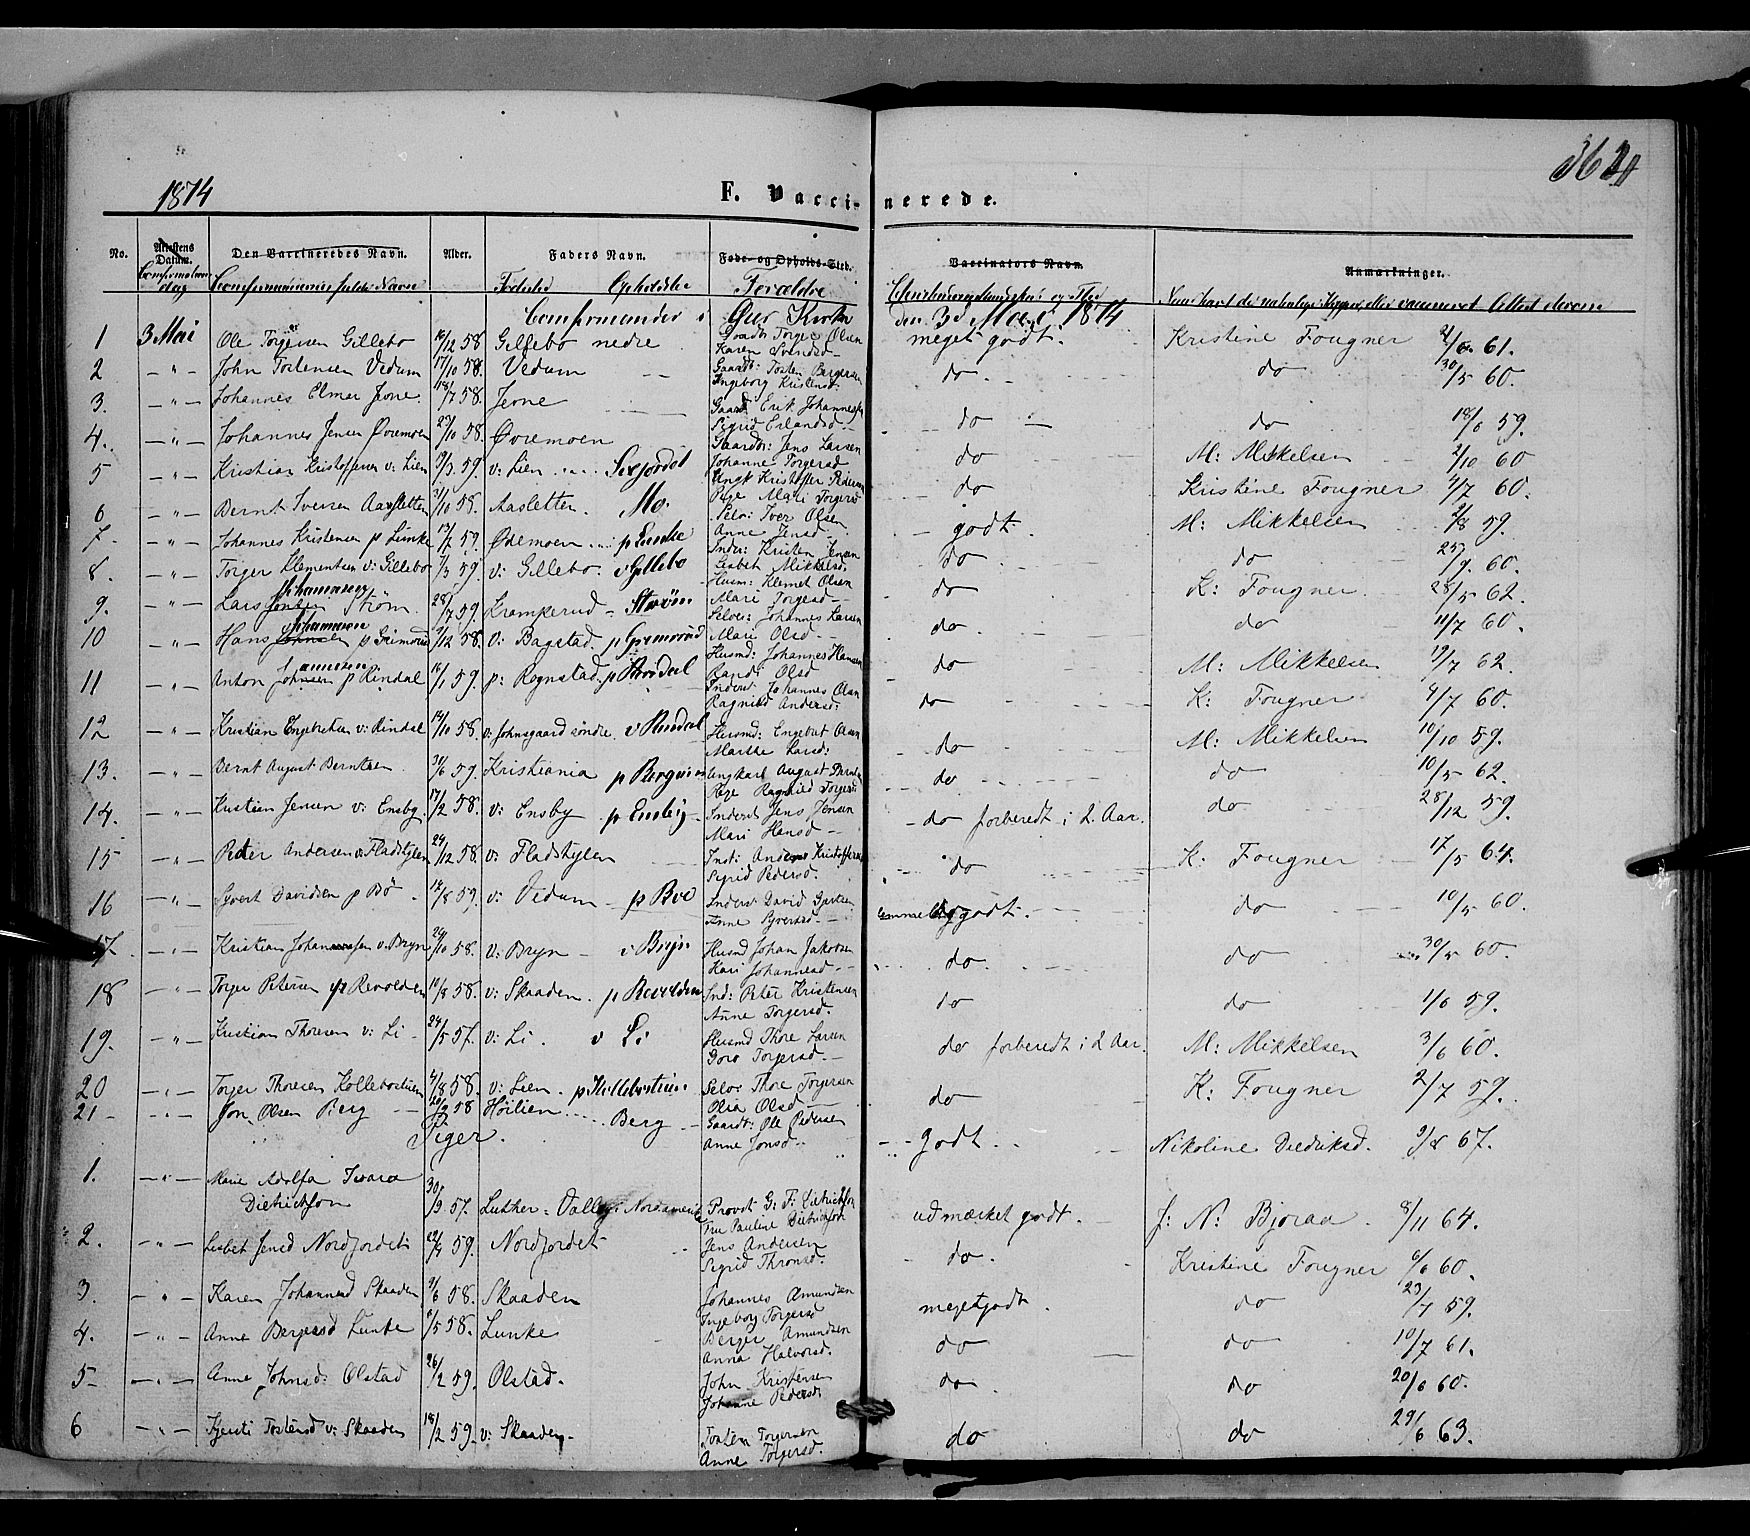 1874
F. Vaccinerede.
No. Attestens Datum. Den Vaccineredes Navn. Alder. Faders Navn. Føde- og Opholds-Sted. Vaccinators Navn. Anmærkninger.
Confirmations dag Confirmandernes fulde Navne Fødested Opholdsted Forældre
Confirmander i Øier Kirke den 3d Mai 1874
1 3 Mai Ole Torgersen Gillebo 12 58 Gillebo nedre Gaardb: Torger Olsen meget godt. Kristine Fougner 61.
Karen Svendsd
2 — " — John Tostensen Vedum 17/10 58. Vedum Gaardb: Tosten Bergersen do do 30/5 60.
Ingeborg Kristensd:
3. — " — Johannes Elmer Jevne 18/7 58. Jevne Gaardb Erik Johannessen do do 18/6 59.
Sigrid Erlandsd
4. — " — Johannes Jensen Øvremoen 29/10 58. Øvremoen Gaardb: Jens Larsen do M: Mikkelsen 2/10 60
Johanne Torgersd
5 — " — Kristian Kristoffersen v: Lien /3 59. v: Lien Svejordet Ungk Kristoffer Pedersen do Kristine Fougner /7 60.
Pige Mari Torgersd
6 — " — Bernt Iversen Aasletten 31/10 58. Aasletten Mo. Selv: Iver Olsen godt. M: Mikkelsen 2/8 59.
Anne Jensd
7. — " — Johannes Kristensen p Lunke 13/2 59. Ødemoen p Lunke Inder: Kristen Jensen do do 25/9 60.
Lisbet Mikkelsd.
8. — " — Torger Klementsen v: Gillebo 7/3 59. v: Gillebo v Gillebo Husm: Klemet Olsen do K: Fougner 28/5 62.
Mari Torgersd
9. — " — Lars Johannesen Strøm 28/7 59. Kramperud Strøm Selv: Johannes Larsen do do 11/7 60.
Mari Olsd
10 — " — Hans Johannesen p Grimsrud /12 58. v: Bagstad p Grimsrud Husmd: Johannes Hansen do M: Mikkelsen 19/7 62.
Randi Olsd
11 — " — Anton p Rindal 16/1 59. p: Rognstad p Rindal Inderst Johannes Olsen do K: Fougner 4/7 60.
Ragnild Andersd:
12 — " — Kristian Engebretsen v: Rindal 14/10 58. v: Johnsgaard søndre v Rindal Husmd: Engebret Olsen do M: Mikkelsen 10/10 59.
Marthe Larsd:
13. — " — Bernt August Berntsen 30/6 59. Kristiania p Bergsien Ungkarl August Berntsen do do 10/5 62.
Pige Ragnild Torgersd
14. — " — Kristian Jensen v: Ensby 17/2 58. v: Ensby p Ensby Inderst Jens Jensen do forberedt i 2 Aar. do 28/12 59.
Mari Hansd
15 — " — Peter Andersen v: Fladstylen 24/12 58. v: Fladstylen Inst: Anders Kristoffersen do K: Fougner 17/5 64.
Sigrid Pedersd.
16 — " — Syvert Davidsen p Bö 12/8 59. v: Vedum p Boe Inderst David Syvertsen temmelig godt. do 10/5 60.
Anne Syversd
17. — " — Kristian Johannesen v. Bryn 29/10 58. v: Bryn v Bryn Husmd Johan Jakobsen do. do 30/5 60.
Kari Johannesd
18 — " — Torger Petersen p Revolden 14/8 58. v: Skaaden p Revolden Ind: Peter Kristensen do do 1/6 59.
Anne Torgersd.
19. — " — Kristian Thoresen v: Li 24/5 57. v: Li. v Li Husmd Thore Larsen do forberedt i 2 Aar. M: Mikkelsen 3/6 60.
Goro Torgersd.
20 — " — Torger Thoresen Kollebostuen 4/8 58. v: Lien p Kollebostuen Selv: Thore Torgersen do K: Fougner 2/7 59.
Olia Olsd
21 — " — Jon Olsen Berg 58 Høilien Berg Gaardb: Ole Pedersen godt Nikoline Diedriksd. 9/8 67.
Anne Jonsd
Piger.
1. — " — Marie Adolfa Isora Dietrichson 30/3 57. Luther-Valley Nordamerika Provst G. F. Dietrichson udmærket godt. J: N: Bjoraa 8/11 64.
Fru Pauline Dietrichson
2. — " — Lisbet Jensd Nordjordet 59. Nordjordet Jens Andersen do. Kristine Fougner 6/6 60.
Sigrid Thronsd.
3. — " — Karen Johannesd Skaaden 9/6 58. Skaaden Johannes Amundsen meget godt. do 23/7 59.
Ingeborg Torgersd
4. — " — Anne Bergersd Lunke 6/5 58. Lunke Berger Amundsen do do 10/7 61.
Anna Halvorsd.
5 — " — Anne Johnsd: Olstad 26/2 59. Olstad. John Kristensen do do 20/6 60.
Johanne Pedersd:
6 — " — Kjersti Tostensd v: Skaaden 18/2 59. v: Skaaden. Tosten Torgersen do do 29/6 63.
Anne Torgersd.